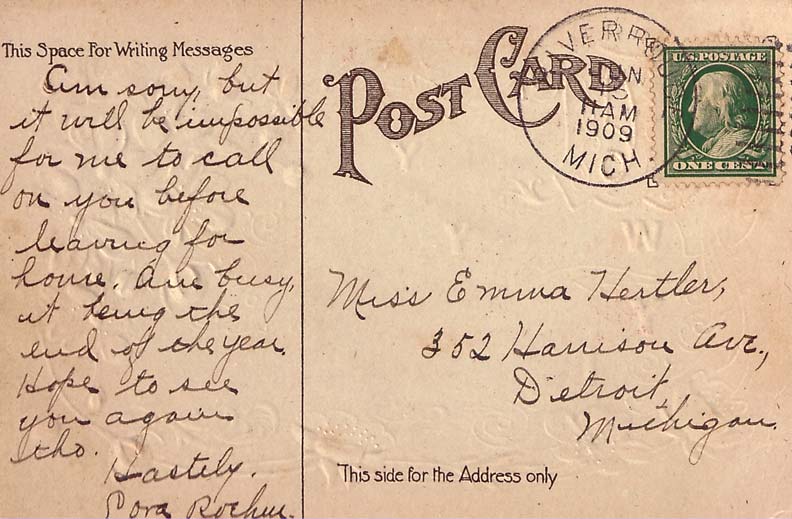 This Space For Writing Messages
Am sorry, but
it will be impossible
for me to call
on you before
leaving for
home. Am busy,
it being the
end of the year.
Hope to see
you again
tho.
Hastily.
Cora
POST CARD
JUN
11 AM
1909
MICH.
U.S. POSTAGE
ONE CENT
Miss Emma Hertler,
352 Harrison Ave.,
Detroit,
Michigan.
This side for the Address only